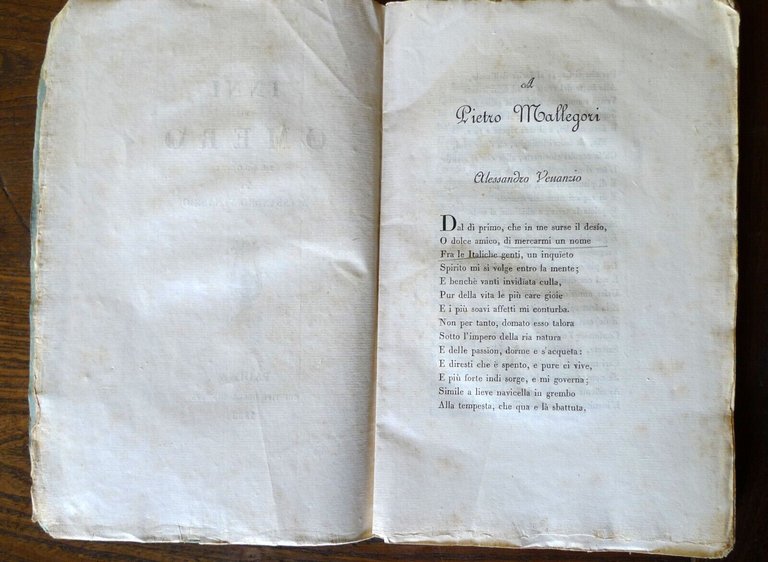 INNI
OMERO
A
Pietro Mallegori
Alessandro Venanzio
Dal dì primo, che in me surse il desío,
O dolce amico, di mercarmi un nome
Fra le Italiche genti, un inquieto
Spirito mi si volge entro la mente;
E benchè vanti invidiata culla,
Pur della vita le più care gioie
E i più soavi affetti mi conturba.
Non per tanto, domato esso talora
Sotto l'impero della ria natura
E delle passion, dorme e s'acqueta:
E diresti che è spento, e pure ci vive,
E più forte indi sorge, e mi governa;
Simile a lieve navicella in grembo
Alla tempesta, che qua e là sbattuta,